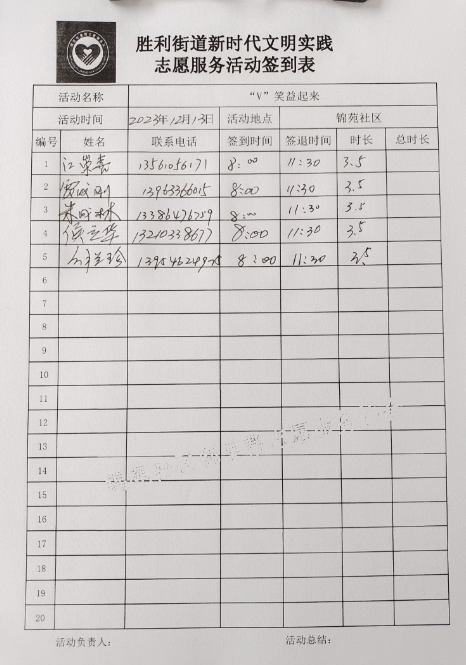 胜利街道新时代文明实践
志愿服务活动签到表
活动名称 “V”笑益起来
活动时间 2023年12月13日 活动地点 锦苑社区
编号 姓名 联系电话 签到时间 签退时间 时长 总时长
1 江荣嘉 13561056171 8:00 11:30 3.5
2 贾成刚 13963366015 8:00 11:30 3.5
3 朱成林 13386476759 8:00 11:30 3.5
4 侯立华 13210338677 8:00 11:30 3.5
5 8:00 11:30 3.5
6
7
8
9
10
11
12
13
14
15
16
17
18
19
20
活动负责人: 活动总结: